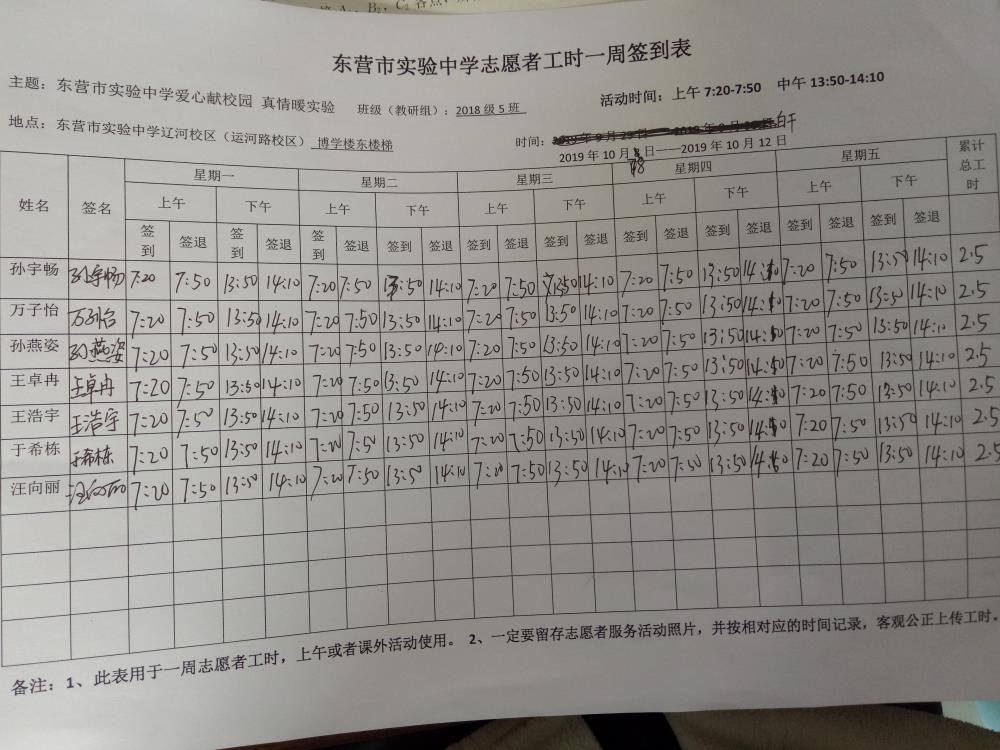 东营市实验中学志愿者工时一周签到表
主题：东营市实验中学爱心献校园 真情暖实验 班级（教研组）：2018级5班 活动时间：上午7:20-7:50 中午13:50-14:10
地点：东营市实验中学辽河校区（运河路校区） 博学楼东楼梯 时间：
2019年10月8日——2019年10月12日
姓名 签名 星期一 星期二 星期三 星期四 星期五 累计总工时
上午 下午 上午 下午 上午 下午 上午 下午 上午 下午
签到 签退 签到 签退 签到 签退 签到 签退 签到 签退 签到 签退 签到 签退 签到 签退 签到 签退 签到 签退
孙宇畅 孙宇畅 7:20 7:50 13:50 14:10 7:20 7:50 13:50 14:10 7:20 7:50 13:50 14:10 7:20 7:50 13:50 14:10 7:20 7:50 13:50 14:10 2.5
万子怡 万子怡 7:20 7:50 13:50 14:10 7:20 7:50 13:50 14:10 7:20 7:50 13:50 14:10 7:20 7:50 13:50 14:10 7:20 7:50 13:50 14:10 2.5
孙燕姿 孙燕姿 7:20 7:50 13:50 14:10 7:20 7:50 13:50 14:10 7:20 7:50 13:50 14:10 7:20 7:50 13:50 14:10 7:20 7:50 13:50 14:10 2.5
王卓冉 王卓冉 7:20 7:50 13:50 14:10 7:20 7:50 13:50 14:10 7:20 7:50 13:50 14:10 7:20 7:50 13:50 14:10 7:20 7:50 13:50 14:10 2.5
王浩宇 王浩宇 7:20 7:50 13:50 14:10 7:20 7:50 13:50 14:10 7:20 7:50 13:50 14:10 7:20 7:50 13:50 14:10 7:20 7:50 13:50 14:10 2.5
于希栋 于希栋 7:20 7:50 13:50 14:10 7:20 7:50 13:50 14:10 7:20 7:50 13:50 14:10 7:20 7:50 13:50 14:10 7:20 7:50 13:50 14:10 2.5
汪向丽 汪向丽 7:20 7:50 13:50 14:10 7:20 7:50 13:50 14:10 7:20 7:50 13:50 14:10 7:20 7:50 13:50 14:10 7:20 7:50 13:50 14:10 2.5
备注：1、此表用于一周志愿者工时，上午或者课外活动使用。 2、一定要留存志愿者服务活动照片，并按相对应的时间记录，客观公正上传工时。